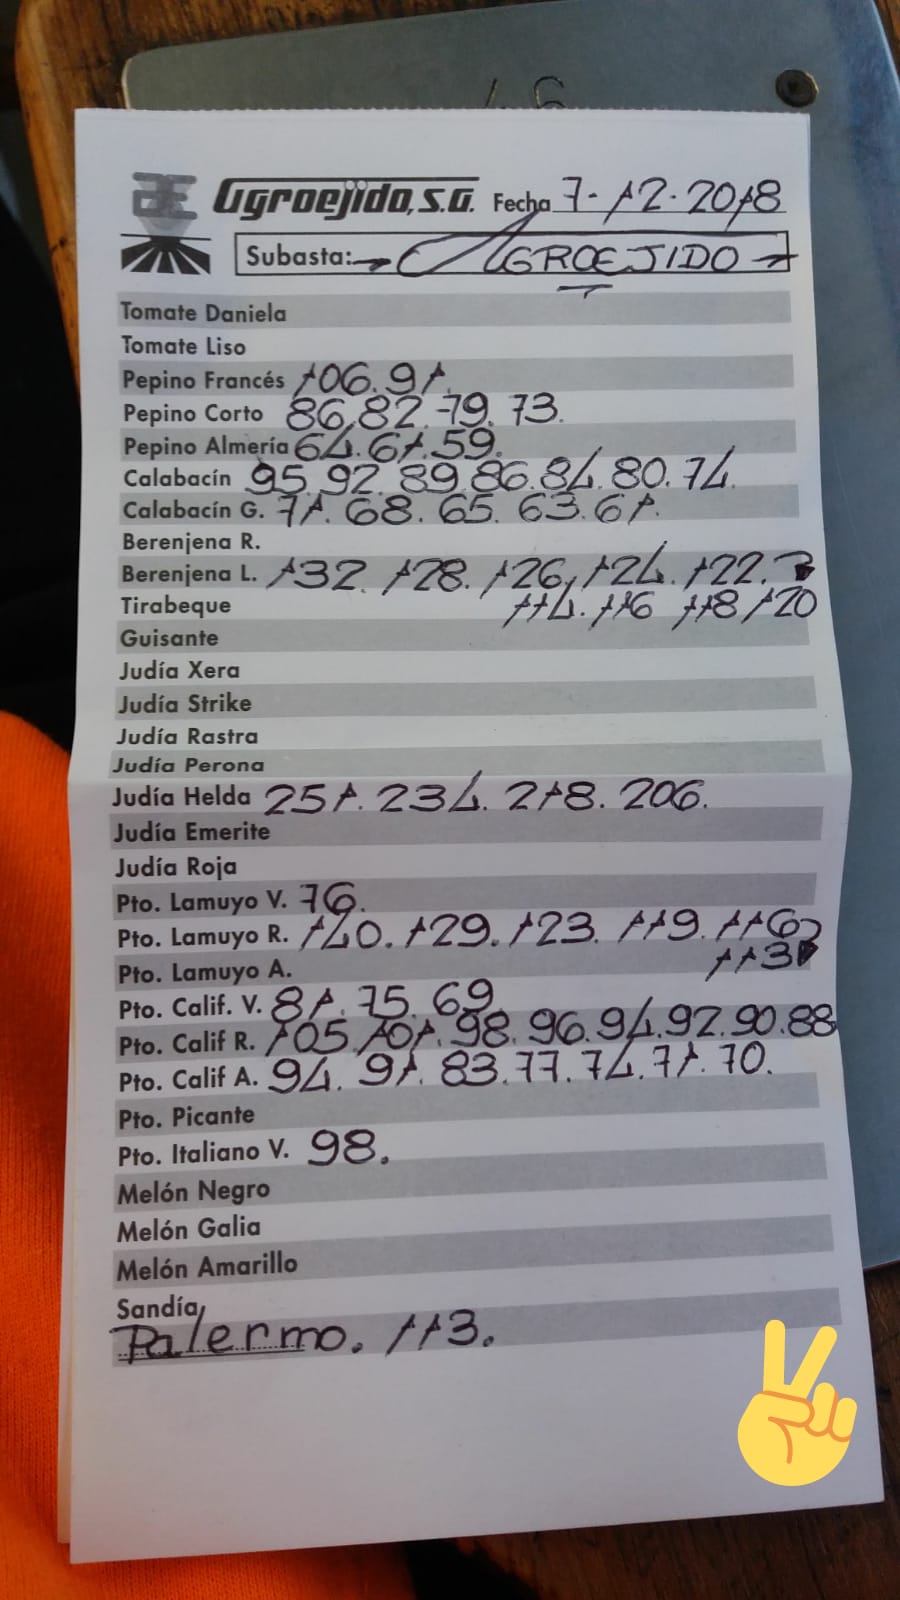 4.6
AE
Agroejido, S.A. Fecha 7-12-2018
Subasta: AGROEJIDO
Tomate Daniela
Tomate Liso
Pepino Francés 106. 91.
Pepino Corto 86. 82. 79. 73.
Pepino Almería 64. 61. 59.
Calabacín 95. 92. 89. 86. 84. 80. 74.
Calabacín G. 71. 68. 65. 63. 61.
Berenjena R.
Berenjena L. 132. 128. 126. 124. 122.
Tirabeque 114. 116 118 120
Guisante
Judía Xera
Judía Strike
Judía Rastra
Judía Perona
Judía Helda 251. 234. 218. 206.
Judía Emerite
Judía Roja
Pto. Lamuyo V. 76.
Pto. Lamuyo R. 140. 129. 123. 119. 116
Pto. Lamuyo A. 113
Pto. Calif. V. 81. 75. 69
Pto. Calif R. 105. 101. 98. 96. 94. 92. 90. 88
Pto. Calif A. 94. 91. 83. 77. 74. 71. 70.
Pto. Picante
Pto. Italiano V. 98.
Melón Negro
Melón Galia
Melón Amarillo
Sandía
Palermo. 113.